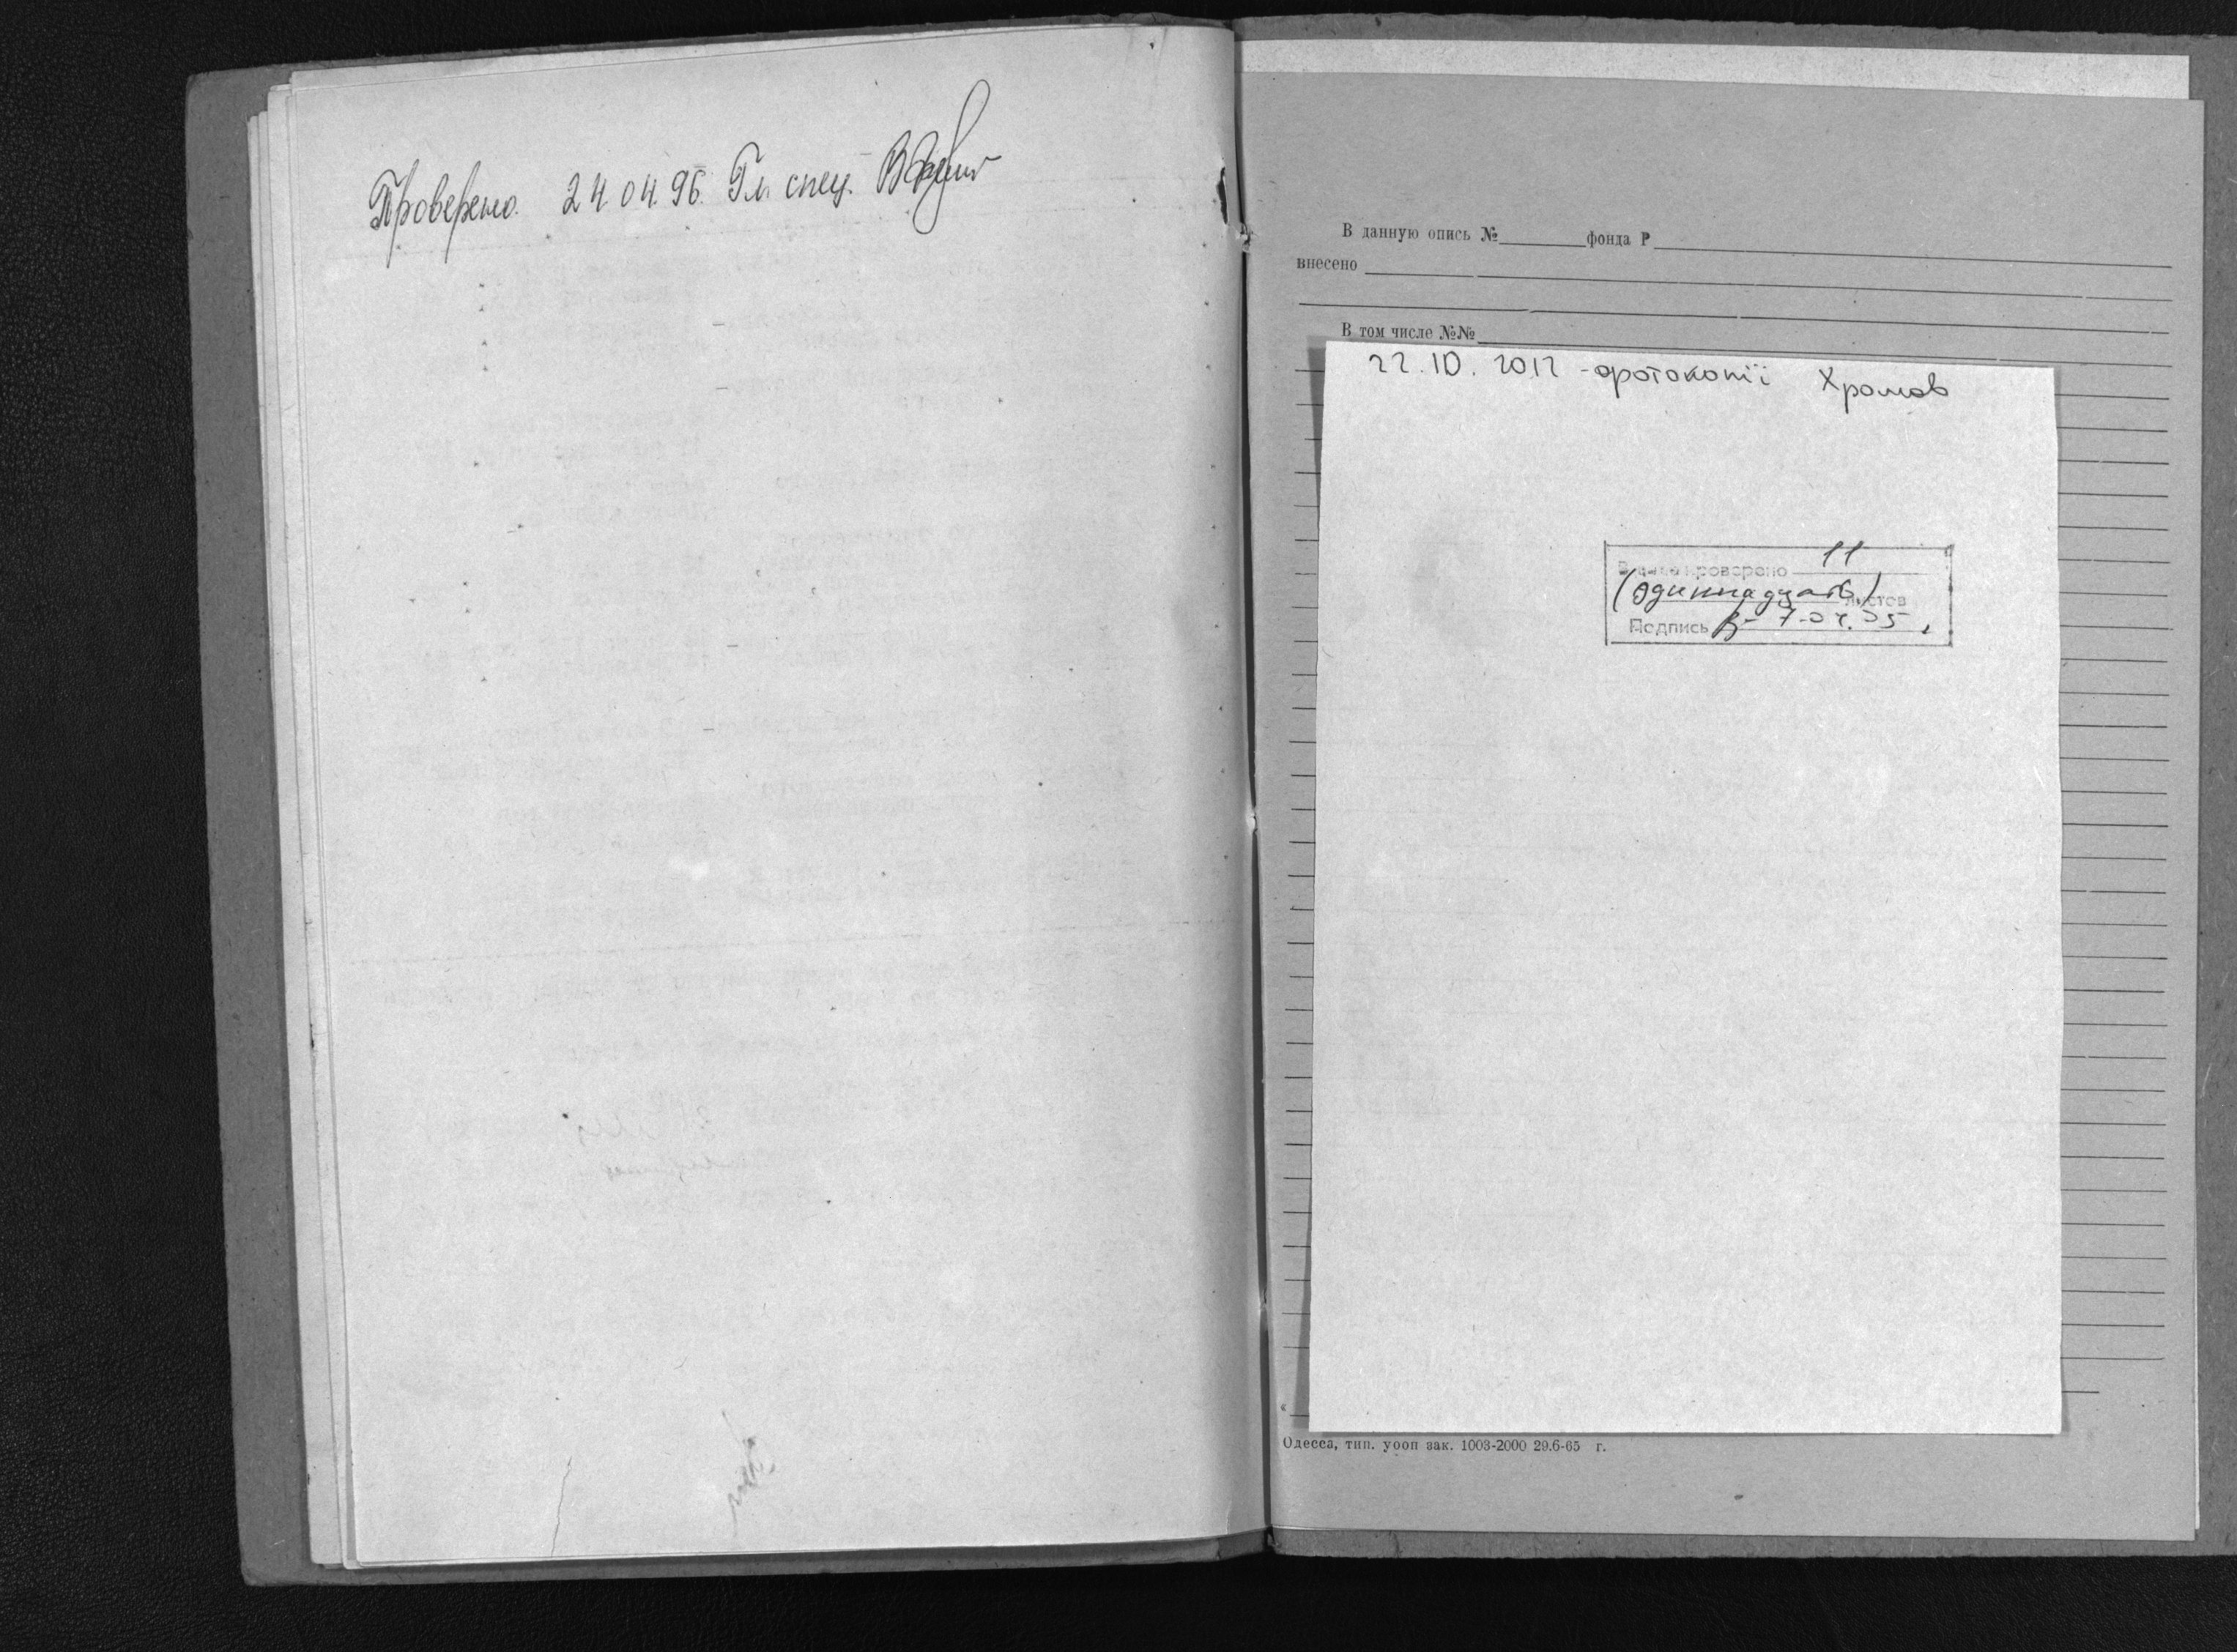 Проверено. 24.04.96. Гл. спец.
В данную опись №________фонда Р
внесено
В том числе №№
22.10.2012 - фотокопії Хромов
В деле проверено 11
(одиннадцать) листов
Подпись 7-04.05
Одесса, тип. уооп зак. 1003-2000 29.6-65 г.